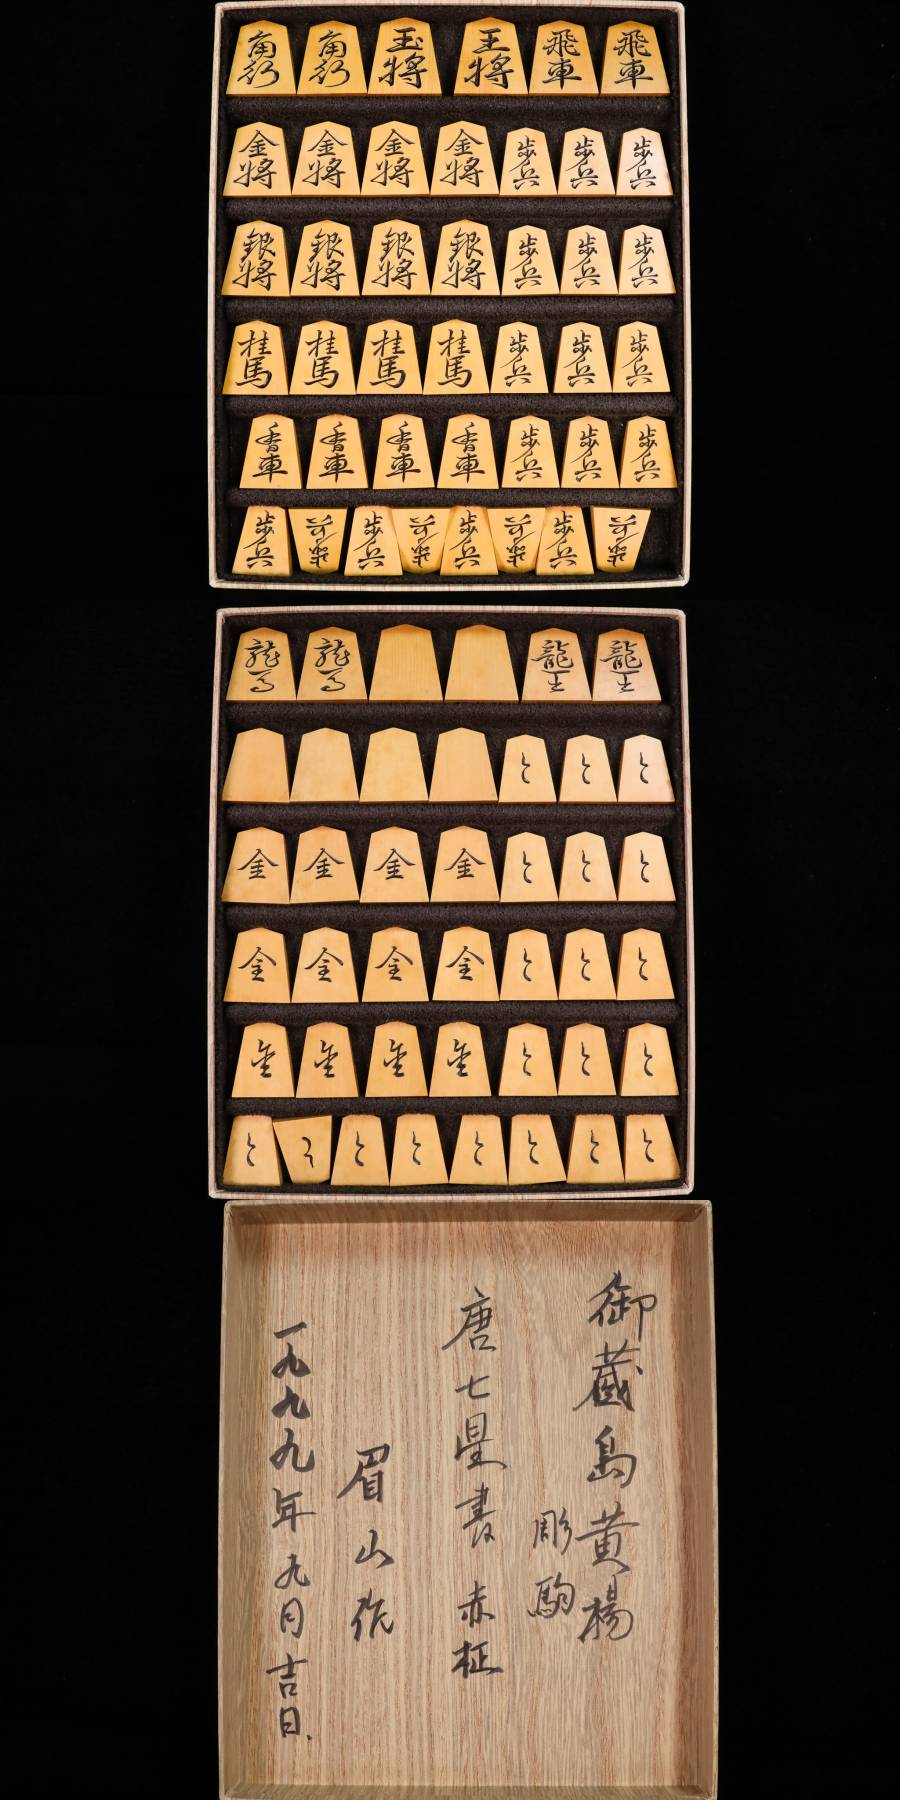 角行 角行 玉将 王将 飛車 飛車
金将 金将 金将 金将 歩兵 歩兵 歩兵
銀将 銀将 銀将 銀将 歩兵 歩兵 歩兵
桂馬 桂馬 桂馬 桂馬 歩兵 歩兵 歩兵
香車 香車 香車 香車 歩兵 歩兵 歩兵
歩兵 歩兵 歩兵 歩兵 歩兵 歩兵 歩兵 歩兵
龍馬 龍馬 龍王 龍王
と と と
金 金 金 金 と と と
金 金 金 金 と と と
金 金 金 金 と と と
と と と と と と と と
御蔵島黄楊
彫駒
唐七星書 赤柾
眉山作
一九九九年九月吉日、